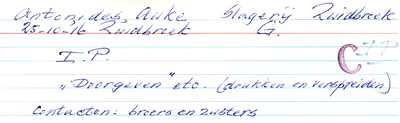 Antonides, Auke Slagerij Zuidbroek
25-10-16 Zuidbroek G.
I.P.
C I P
„Doorgeven" etc. (drukken en verspreiden)
Contacten: broers en zusters